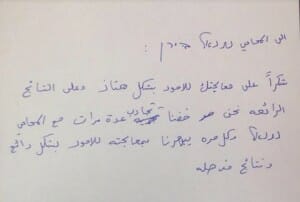 الى المحامي :
شكراً على معالجتك للامور بشكل ممتاز وعلى النتائج
الرائعه نحن خضنا تجارب عدة مرات مع المحامي
وكل مره يبهرنا بمعالجته للامور بشكل رائع
ونتائج مذهله